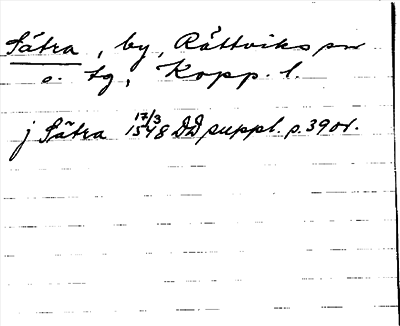 Sätra, by, Rättviks sn
o. tg, Kopp. l.
j Sätra 17/3 1548 DD suppl. s. 390f.